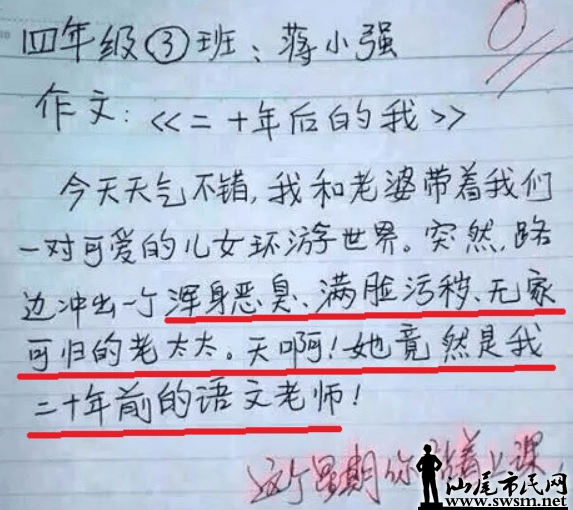 四年级③班:蒋小强
0
作文:<<二十年后的我>>
今天天气不错,我和老婆带着我们
一对可爱的儿女环游世界。突然,路
边冲出一个浑身恶臭、满脸污秽、无家
可归的老太太。天啊!她竟然是我
二十年前的语文老师!
这个星期你 着上课
汕尾市民网
www.swsm.net